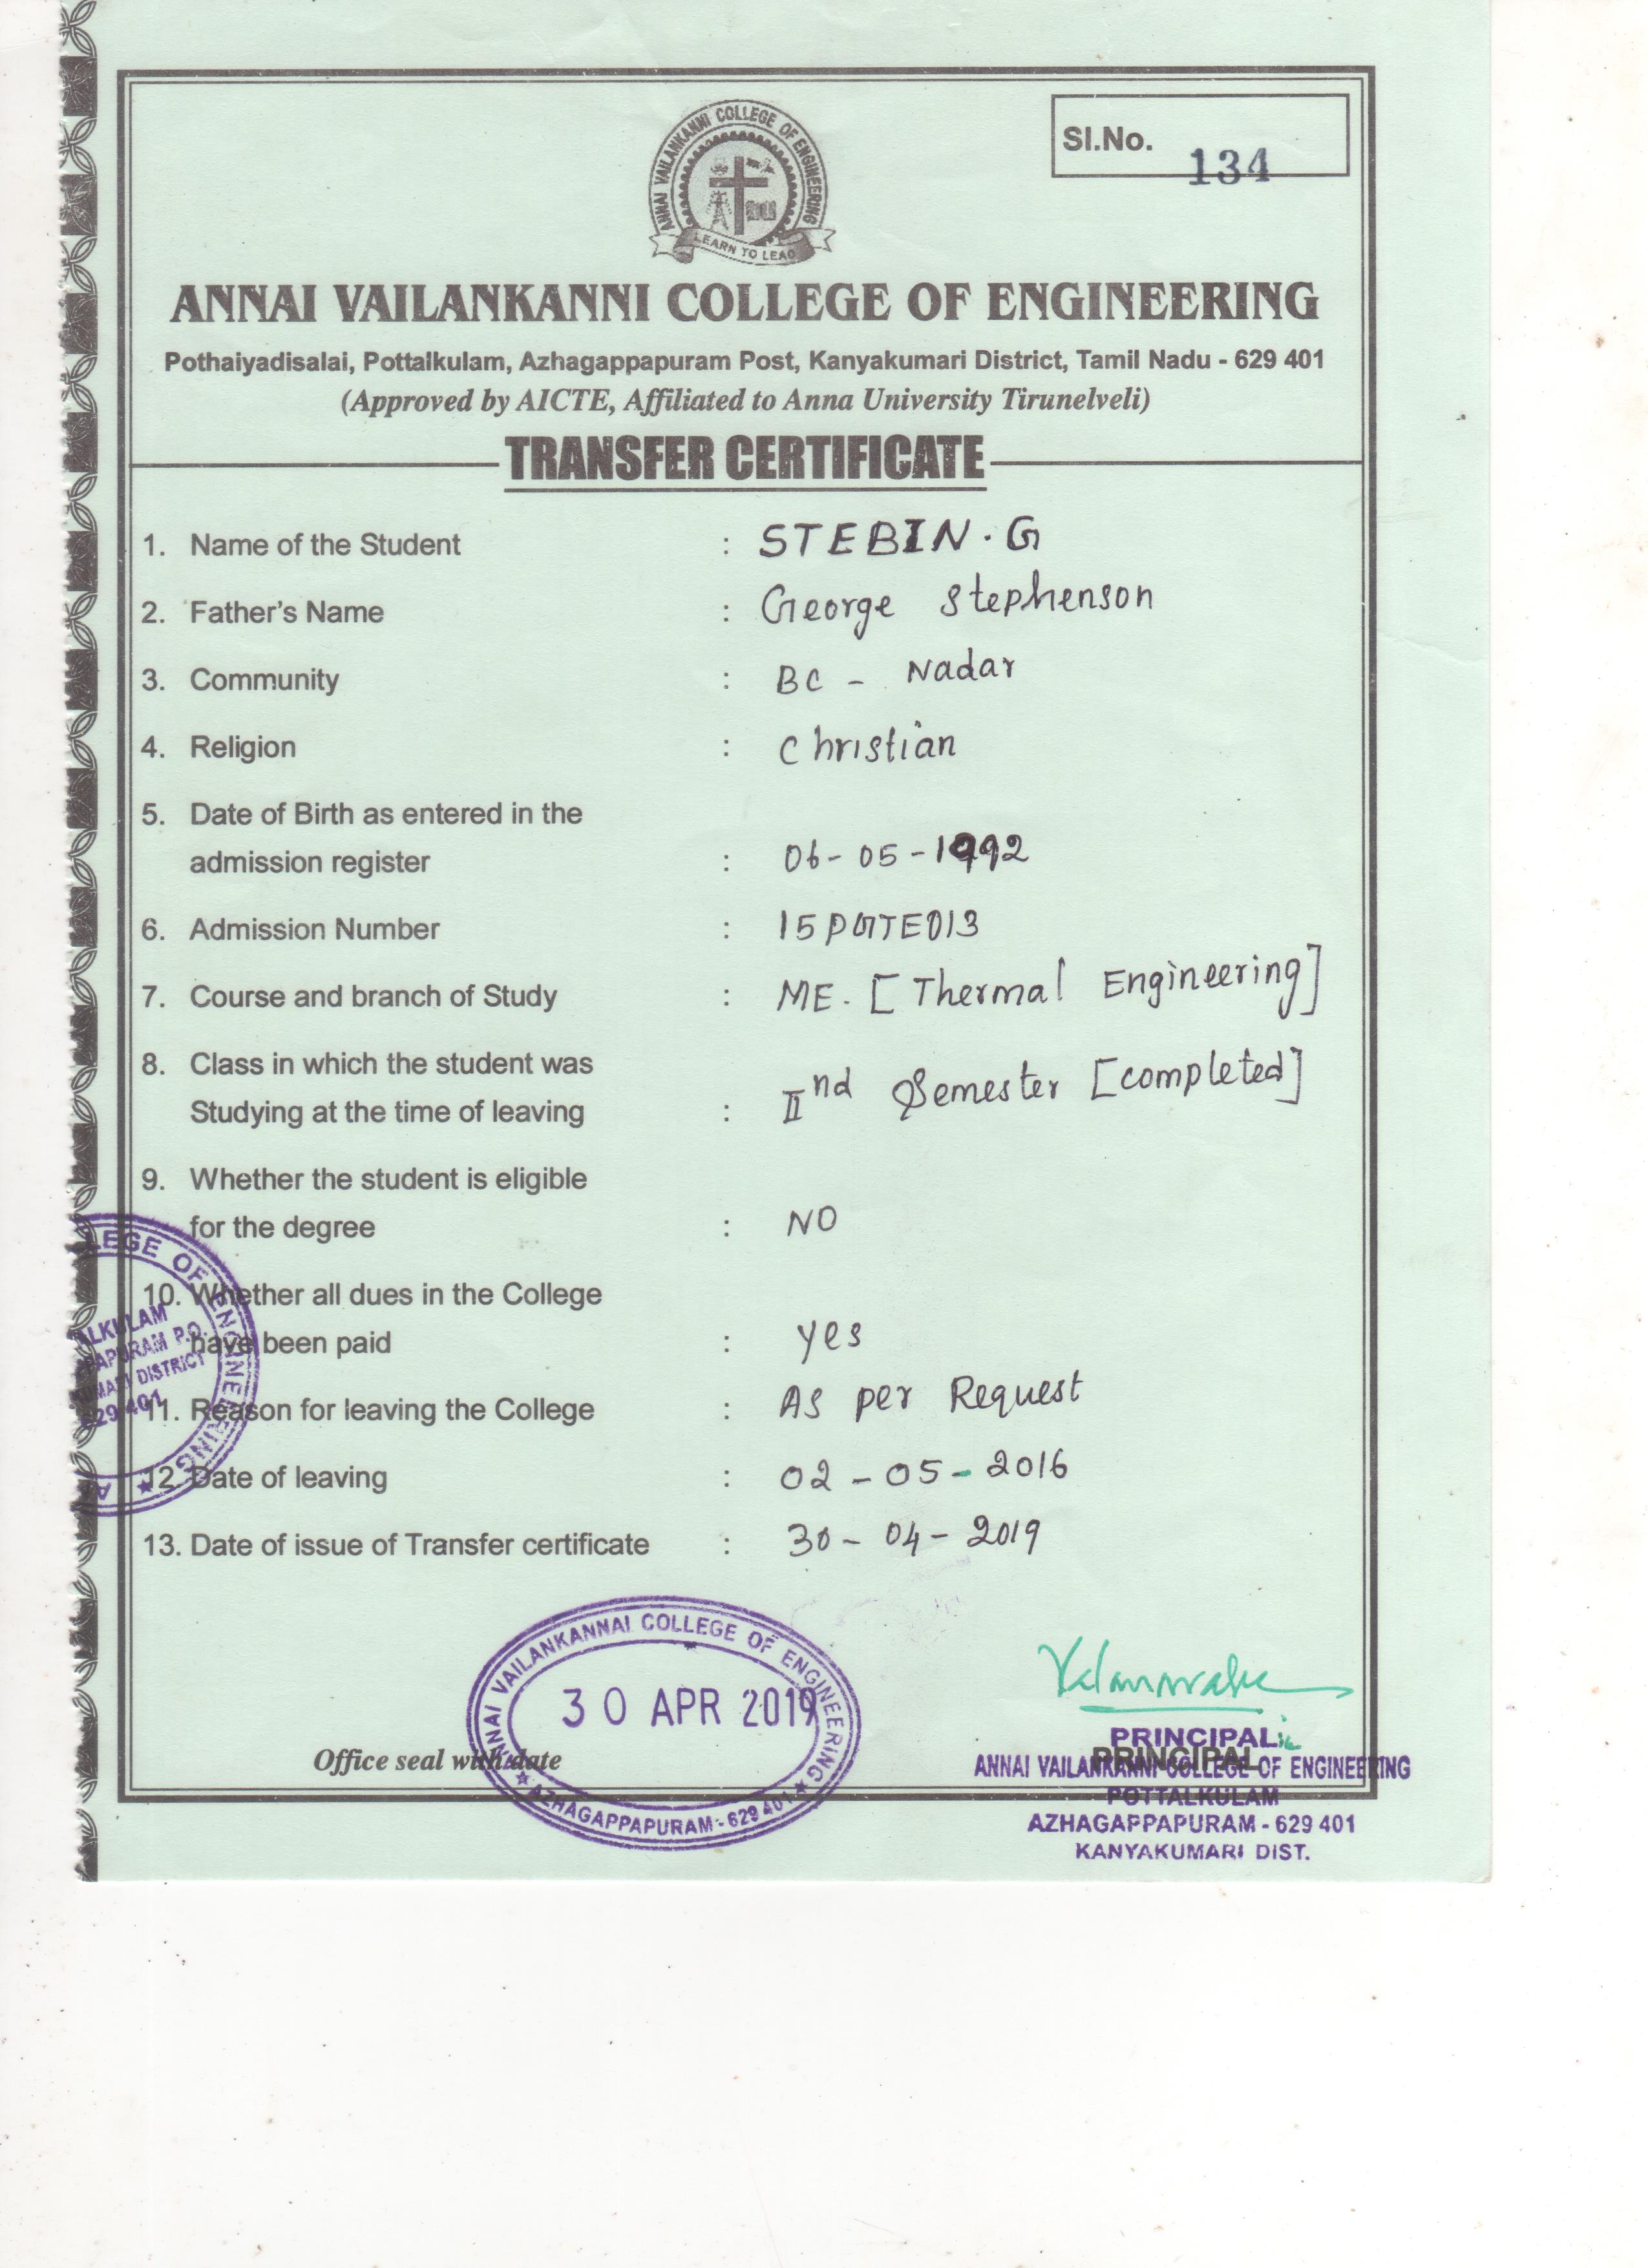 ANNAI VAILANKANNI COLLEGE OF ENGINEERING
LEARN TO LEAD
Sl.No. 134
ANNAI VAILANKANNI COLLEGE OF ENGINEERING
Pothaiyadisalai, Pottalkulam, Azhagappapuram Post, Kanyakumari District, Tamil Nadu - 629 401
(Approved by AICTE, Affiliated to Anna University Tirunelveli)
TRANSFER CERTIFICATE
1. Name of the Student : STEBIN. G
2. Father's Name : George Stephenson
3. Community : BC - Nadar
4. Religion : Christian
5. Date of Birth as entered in the
admission register : 06-05-1992
6. Admission Number : 15PGTE013
7. Course and branch of Study : ME. [Thermal Engineering]
8. Class in which the student was
Studying at the time of leaving : IInd Semester [completed]
9. Whether the student is eligible
for the degree : NO
10. Whether all dues in the College
have been paid : yes
11. Reason for leaving the College : As per Request
12. Date of leaving : 02-05-2016
13. Date of issue of Transfer certificate : 30-04-2019
LEGE OF ENGINEERING ★ A
ALKULAM
PAPURAM P.O.
UMARI DISTRICT
629 401
ANNAI VAILANKANNAI COLLEGE OF ENGINEERING
30 APR 2019
★ AZHAGAPPAPURAM - 629 401 ★
Office seal with date
PRINCIPAL
PRINCIPAL
ANNAI VAILANKANNI COLLEGE OF ENGINEERING
POTTALKULAM
AZHAGAPPAPURAM - 629 401
KANYAKUMARI DIST.